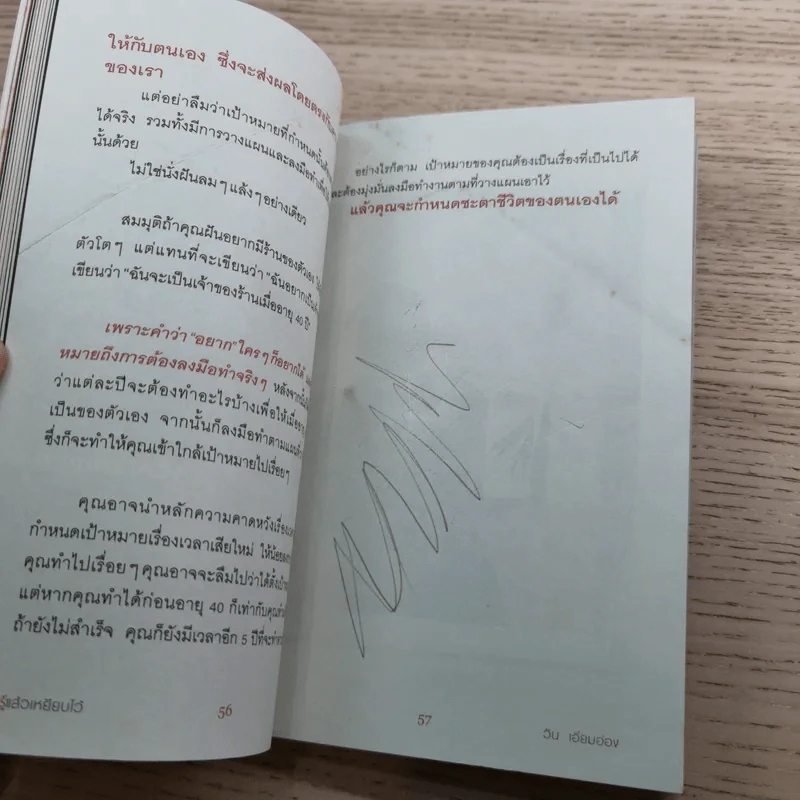 ให้กับตนเอง ซึ่งจะส่งผลโดยตรงกับ
ของเรา
แต่อย่าลืมว่าเป้าหมายที่กำหนดนั้น
ได้จริง รวมทั้งมีการวางแผนและลงมือทำ
นั้นด้วย
ไม่ใช่นั่งฝันลมๆแล้งๆอย่างเดียว
สมมุติถ้าคุณฝันอยากมีร้านของตัวเอง
ตัวโตๆ แต่แทนที่จะเขียนว่า "ฉันอยากเป็น
เขียนว่า "ฉันจะเป็นเจ้าของร้านเมื่ออายุ 40 ปี"
เพราะคำว่า "อยาก" ใครๆก็อยากได้
หมายถึงการต้องลงมือทำจริงๆ หลังจากนั้น
ว่าแต่ละปีจะต้องทำอะไรบ้างเพื่อให้เมื่ออายุ
เป็นของตัวเอง จากนั้นก็ลงมือทำตามแผน
ซึ่งก็จะทำให้คุณเข้าใกล้เป้าหมายไปเรื่อยๆ
คุณอาจนำหลักความคาดหวังเรื่อง
กำหนดเป้าหมายเรื่องเวลาเสียใหม่ ให้น้อย
คุณทำไปเรื่อยๆคุณอาจจะลืมไปว่าได้ตั้ง
แต่หากคุณทำได้ก่อนอายุ 40 ก็เท่ากับคุณ
ถ้ายังไม่สำเร็จ คุณก็ยังมีเวลาอีก 5 ปีที่จะ
รู้แล้วเหยียบไว้
56
อย่างไรก็ตาม เป้าหมายของคุณต้องเป็นเรื่องที่เป็นไปได้
ละต้องมุ่งมั่นลงมือทำงานตามที่วางแผนเอาไว้
แล้วคุณจะกำหนดชะตาชีวิตของตนเองได้
57
วิน เอี่ยมอ่อง